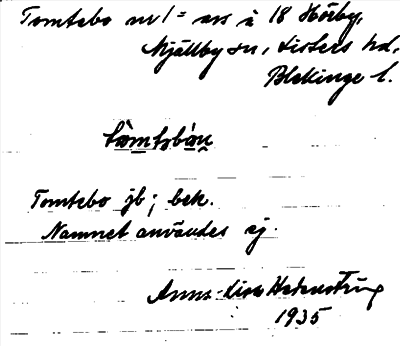 Tomtebo nr 1 = avs å 18 Hörby,
Mjällby sn, Listers hd,
Blekinge l.
Tomtebo jb; bek.
Namnet användes ej.
Anna-Lisa
1935